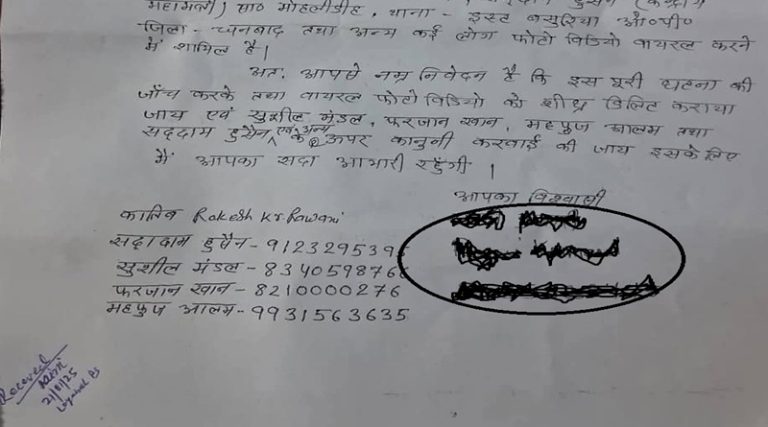 महामंत्री) ग्राम मोहलीडीह, थाना - इस्ट बसुरिया ओ०पी०
जिला - धनबाद तथा अन्य कई लोग फोटो विडियो वायरल करने
में शामिल है।
अतः आपसे नम्र निवेदन है कि इस पूरी घटना की
जाँच करके तथा वायरल फोटो विडियो को शीघ्र डिलिट कराया
जाय एवं सुशील मंडल, फरजान खान, महफुज आलम तथा
सद्दाम हुसैन एवं अन्य के ऊपर कानुनी करवाई की जाय इसके लिए
मैं आपका सदा आभारी रहुँगी ।
आपका विश्वासी
कातिब Rakesh Kr Pawani
सद्दाम हुसैन - 912329539
सुशील मंडल - 834059876
फरजान खान - 8210000276
महफुज आलम - 9931563635
Received
21/01/25